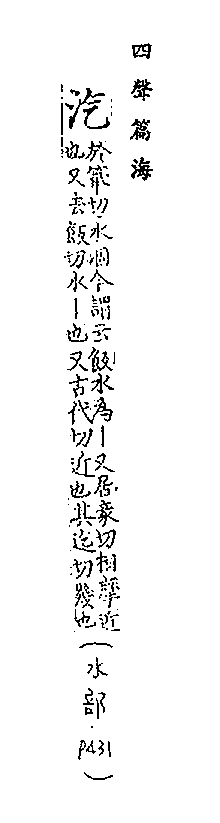 四聲篇海
汔
於氣切水涸今謂去飯水為丨又居豪切相摩近
也又去飯切水丨也又古代切近也其迄切幾也
(水部.P431)